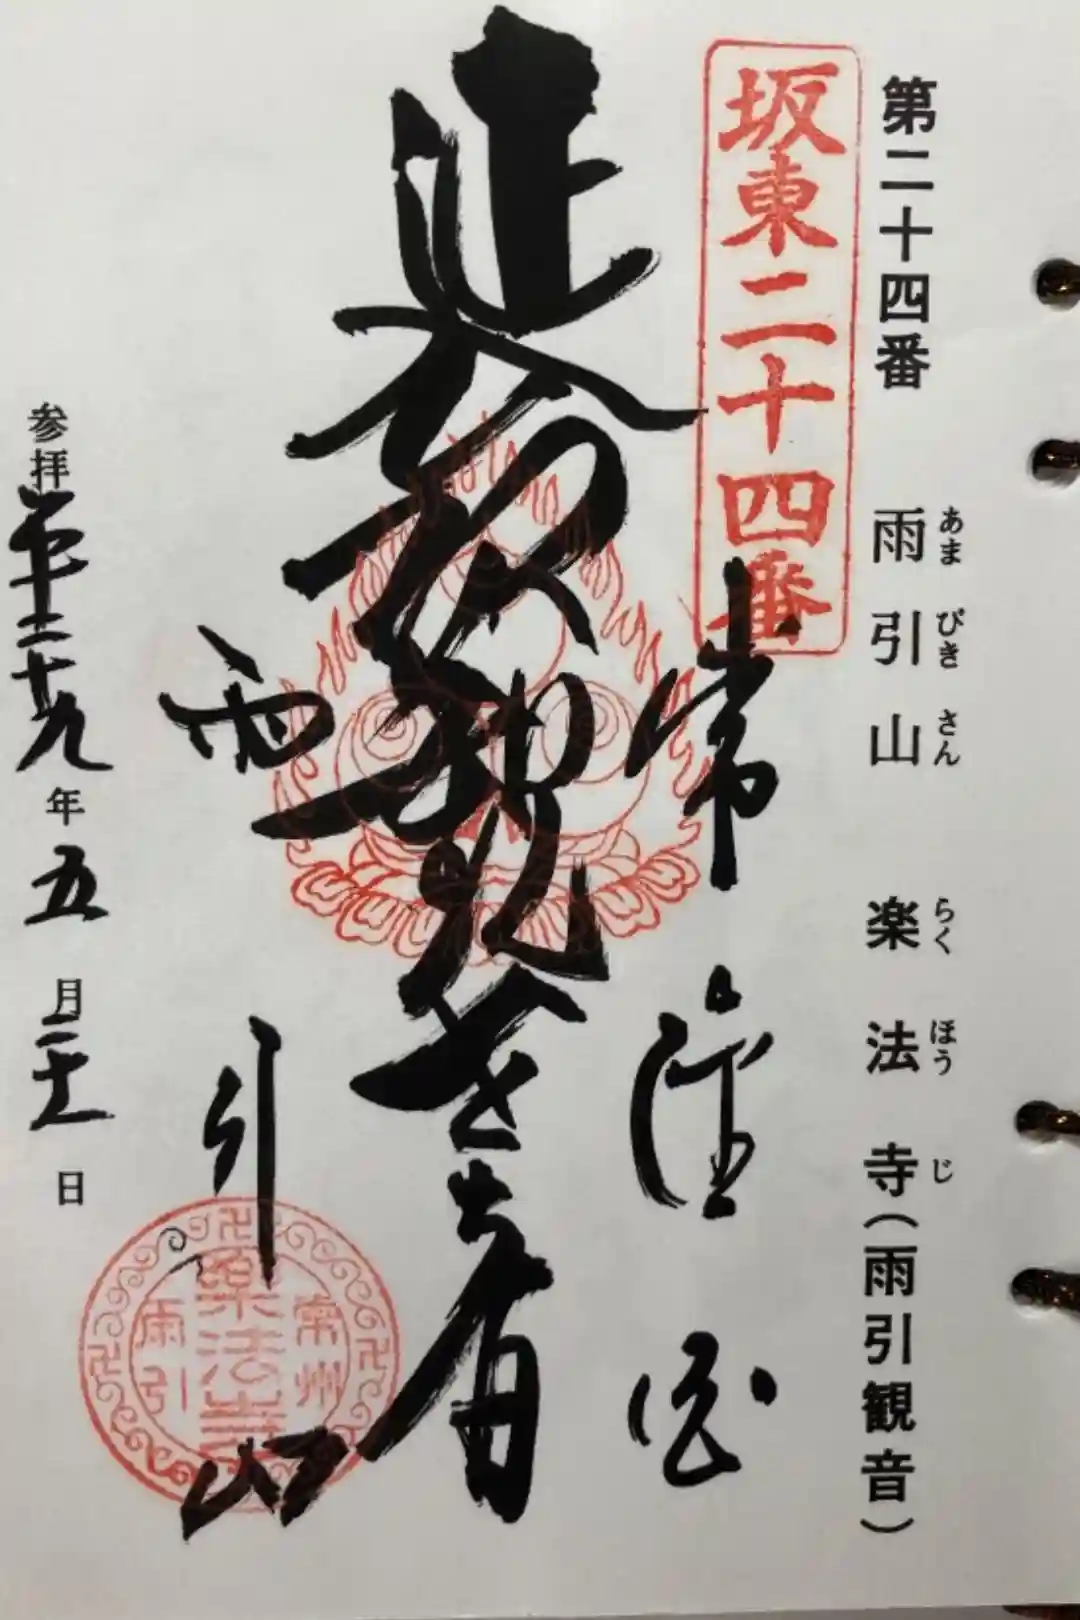 第二十四番 雨引山 楽法寺(雨引観音)
あま びき さん らく ほう じ
坂東二十四番
常陸国
観世音
雨引山
常州
樂法寺
雨引
参拝 平成二十九年五月 日